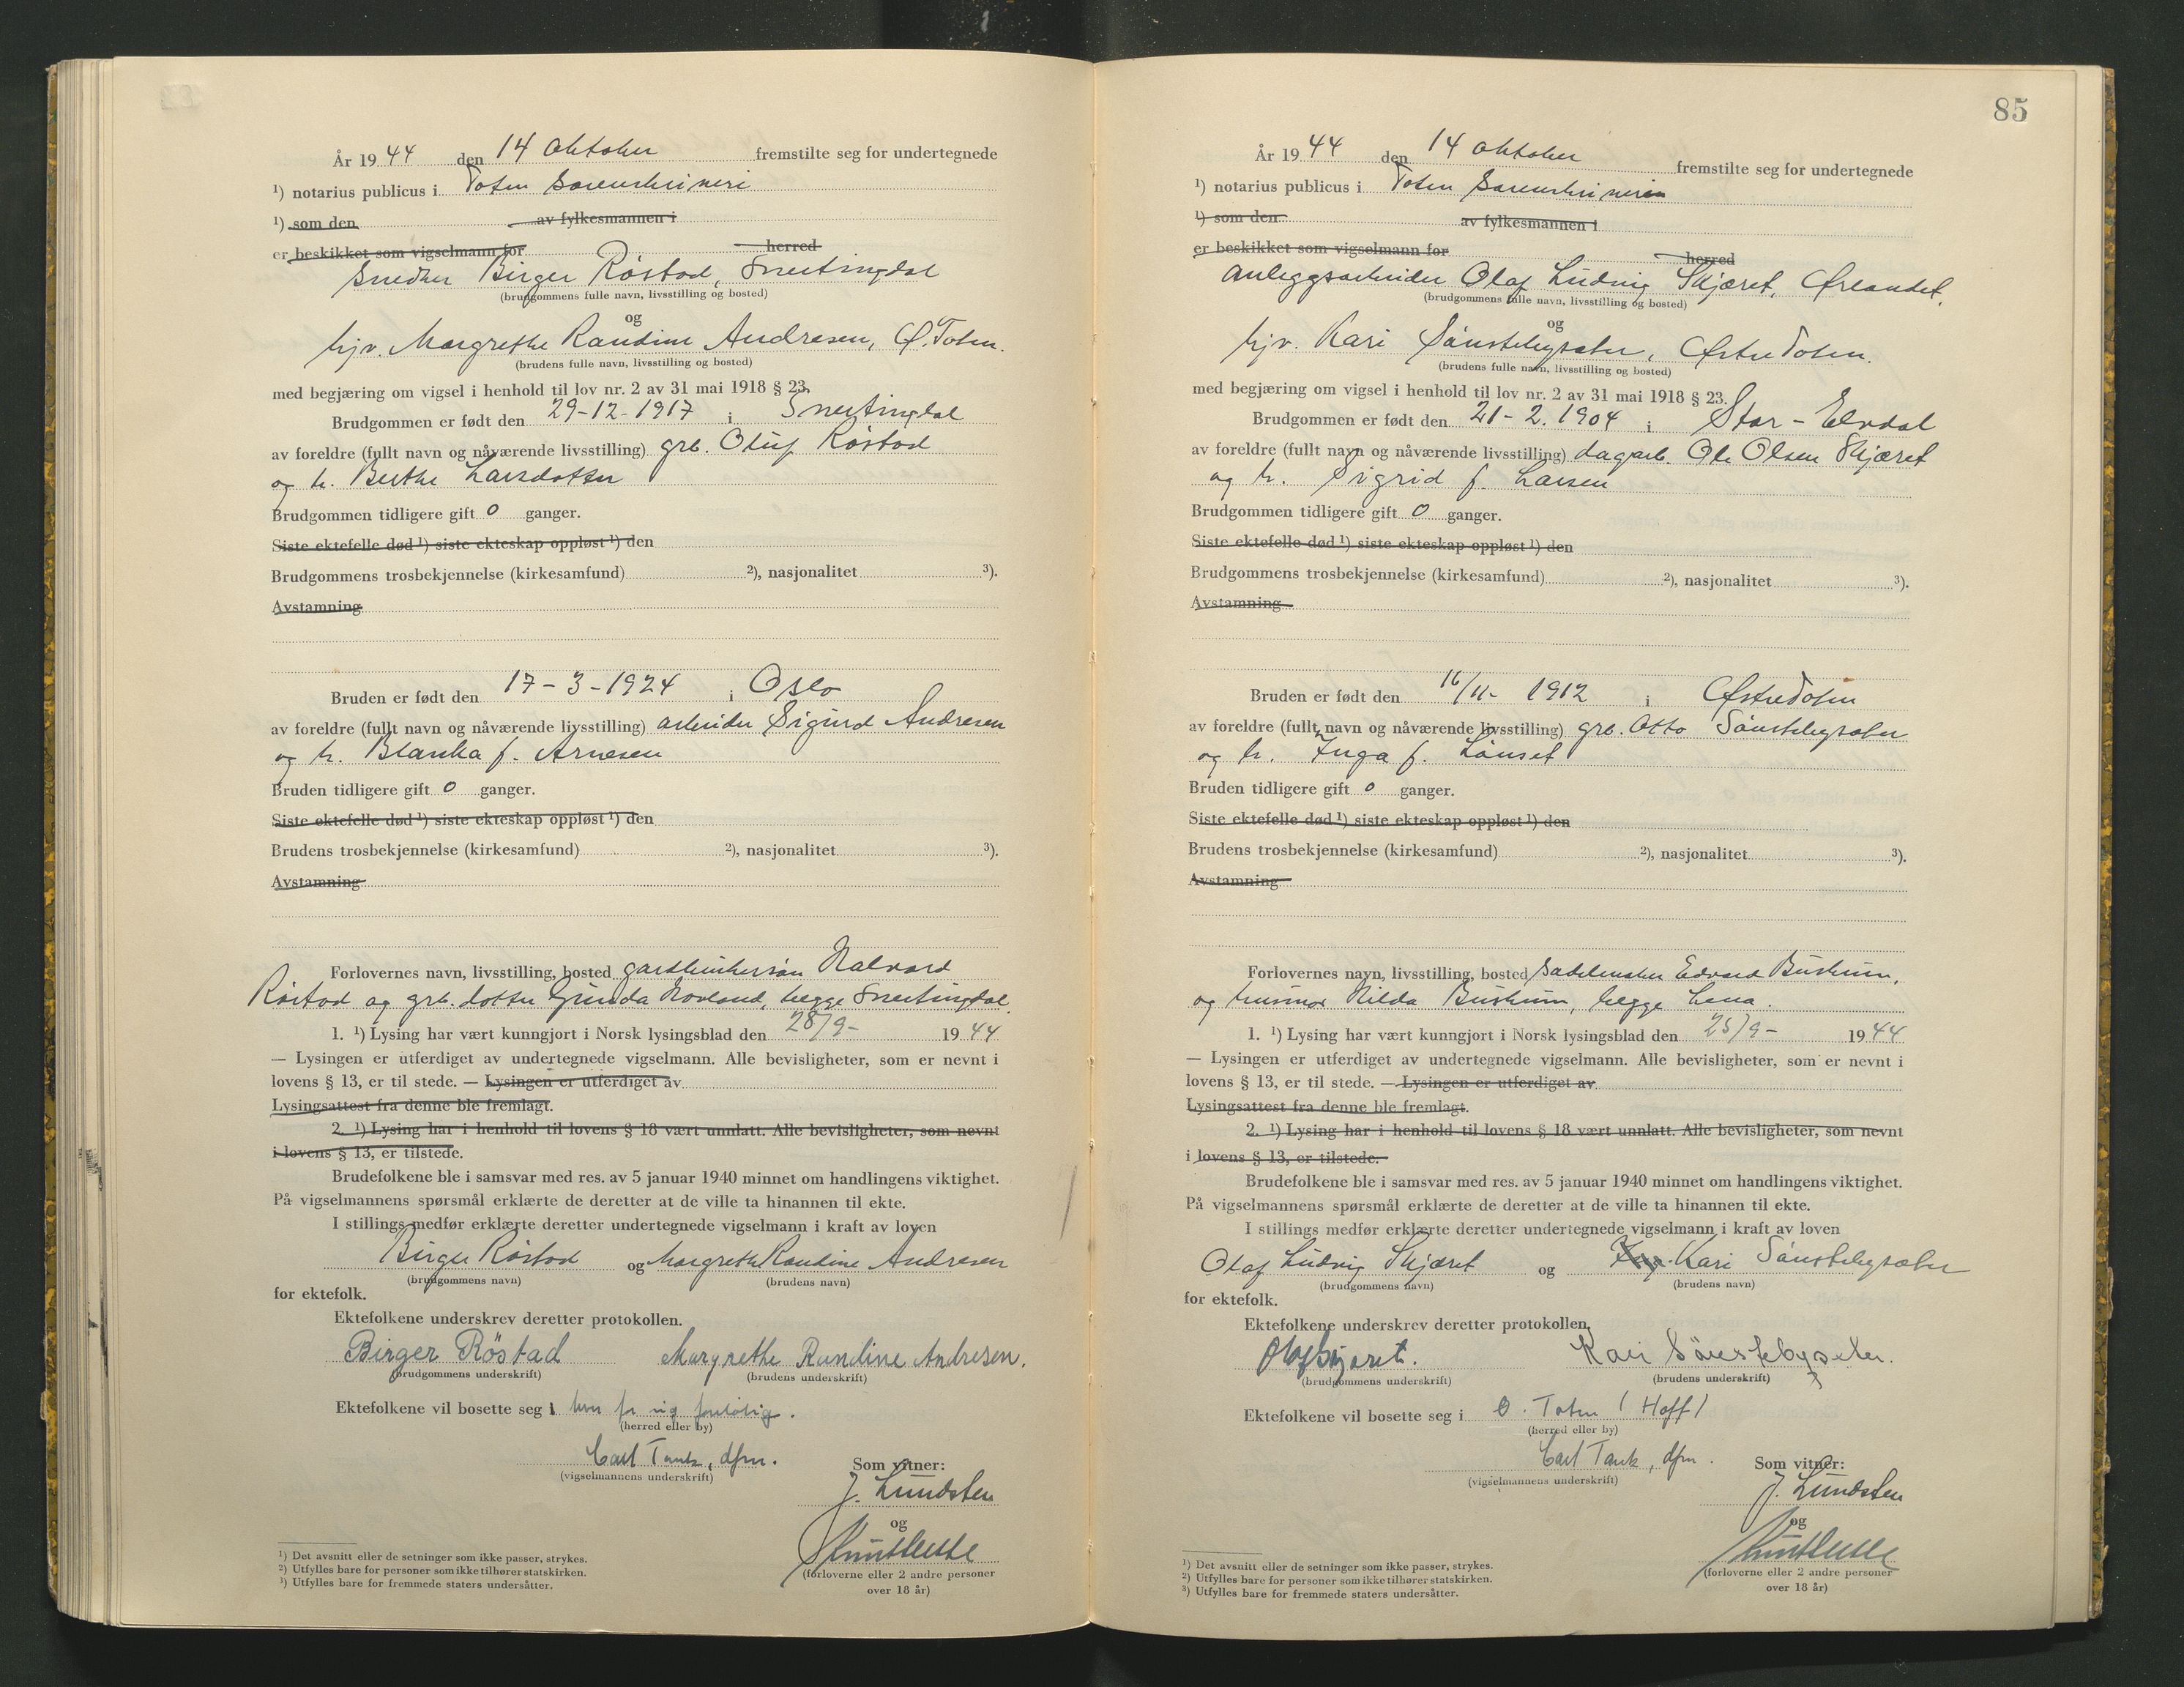 År 19 44 den 14 oktober fremstilte seg for undertegnede
¹) notarius publicus i Toten Sorenskriveri
¹) som den av fylkesmannen i
er beskikket som vigselmann for herred
Snedker Birger Röstad, Snertingdal
(brudgommens fulle navn, livsstilling og bosted)
og
hjv. Margrethe Randine Andresen, Ø. Toten.
(brudens fulle navn, livsstilling og bosted)
med begjæring om vigsel i henhold til lov nr. 2 av 31 mai 1918 § 23.
Brudgommen er født den 29-12-1917 i Snertingdal
av foreldre (fullt navn og nåværende livsstilling) grb. Oluf Röstad
og h. Berthe Larsdotter
Brudgommen tidligere gift 0 ganger.
Siste ektefelle død ¹) siste ekteskap oppløst ¹) den
Brudgommens trosbekjennelse (kirkesamfund) ²), nasjonalitet ³).
Avstamning
Bruden er født den 17-3-1924 i Oslo
av foreldre (fullt navn og nåværende livsstilling) arbeider Sigurd Andresen
og h. Blanka f. Arnesen
Bruden tidligere gift 0 ganger.
Siste ektefelle død ¹) siste ekteskap oppløst ¹) den
Brudens trosbekjennelse (kirkesamfund) ²), nasjonalitet ³).
Avstamning
Forlovernes navn, livsstilling, bosted gardbrukersön Halvard
Röstad og grb. dotter Gunda Hovland, begge Snertingdal.
1. ¹) Lysing har vært kunngjort i Norsk lysingsblad den 28/9- 19 44
— Lysingen er utferdiget av undertegnede vigselmann. Alle bevisligheter, som er nevnt i
lovens § 13, er til stede. — Lysingen er utferdiget av
Lysingsattest fra denne ble fremlagt.
2. ¹) Lysing har i henhold til lovens § 18 vært unnlatt. Alle bevisligheter, som nevnt
i lovens § 13, er tilstede.
Brudefolkene ble i samsvar med res. av 5 januar 1940 minnet om handlingens viktighet.
På vigselmannens spørsmål erklærte de deretter at de ville ta hinannen til ekte.
I stillings medfør erklærte deretter undertegnede vigselmann i kraft av loven
Birger Röstad og Margrethe Randine Andresen
(brudgommens navn) (brudens navn)
for ektefolk.
Ektefolkene underskrev deretter protokollen.
Birger Röstad Margrethe Randine Andresen.
(brudgommens underskrift) (brudens underskrift)
Ektefolkene vil bosette seg i hver for sig foreløbig.
(herred eller by)
Carl Tank, dfm.
(vigselmannens underskrift)
Som vitner:
J. Lundsten
og
(forloverne eller 2 andre personer
over 18 år)
¹) Det avsnitt eller de setninger som ikke passer, strykes.
²) Utfylles bare for personer som ikke tilhører statskirken.
³) Utfylles bare for fremmede staters undersåtter.
85
År 19 44 den 14 oktober fremstilte seg for undertegnede
¹) notarius publicus i Toten Sorenskriveri
¹) som den av fylkesmannen i
er beskikket som vigselmann for herred
Anleggsarbeider Olaf Ludvig Skjæret, Ørlandet.
(brudgommens fulle navn, livsstilling og bosted)
og
hjv. Kari Sönstebysæter, Østre Toten.
(brudens fulle navn, livsstilling og bosted)
med begjæring om vigsel i henhold til lov nr. 2 av 31 mai 1918 § 23.
Brudgommen er født den 21-2.1904 i Stor-Elvdal
av foreldre (fullt navn og nåværende livsstilling) dagarb. Ole Olsen Skjæret
og h. Sigrid f. Larsen
Brudgommen tidligere gift 0 ganger.
Siste ektefelle død ¹) siste ekteskap oppløst ¹) den
Brudgommens trosbekjennelse (kirkesamfund) ²), nasjonalitet ³).
Avstamning
Bruden er født den 16/11- 1912 i Østre Toten
av foreldre (fullt navn og nåværende livsstilling) grb. Otto Sönstebysæter
og h. Inga f. Lönset
Bruden tidligere gift 0 ganger.
Siste ektefelle død ¹) siste ekteskap oppløst ¹) den
Brudens trosbekjennelse (kirkesamfund) ²), nasjonalitet ³).
Avstamning
Forlovernes navn, livsstilling, bosted Sadelmaker Edvard Buskum,
og husmor Hilda Buskum, begge Lena.
1. ¹) Lysing har vært kunngjort i Norsk lysingsblad den 25/9- 19 44
— Lysingen er utferdiget av undertegnede vigselmann. Alle bevisligheter, som er nevnt i
lovens § 13, er til stede. — Lysingen er utferdiget av
Lysingsattest fra denne ble fremlagt.
2. ¹) Lysing har i henhold til lovens § 18 vært unnlatt. Alle bevisligheter, som nevnt
i lovens § 13, er tilstede.
Brudefolkene ble i samsvar med res. av 5 januar 1940 minnet om handlingens viktighet.
På vigselmannens spørsmål erklærte de deretter at de ville ta hinannen til ekte.
I stillings medfør erklærte deretter undertegnede vigselmann i kraft av loven
Olaf Ludvig Skjæret og Kari Sönstebysæter
(brudgommens navn) (brudens navn)
for ektefolk.
Ektefolkene underskrev deretter protokollen.
Olaf Skjæret. Kari Sönstebyseter.
(brudgommens underskrift) (brudens underskrift)
Ektefolkene vil bosette seg i Ø. Toten (Hoff)
(herred eller by)
Carl Tank, dfm.
(vigselmannens underskrift)
Som vitner:
J. Lundsten
og
(forloverne eller 2 andre personer
over 18 år)
¹) Det avsnitt eller de setninger som ikke passer, strykes.
²) Utfylles bare for personer som ikke tilhører statskirken.
³) Utfylles bare for fremmede staters undersåtter.